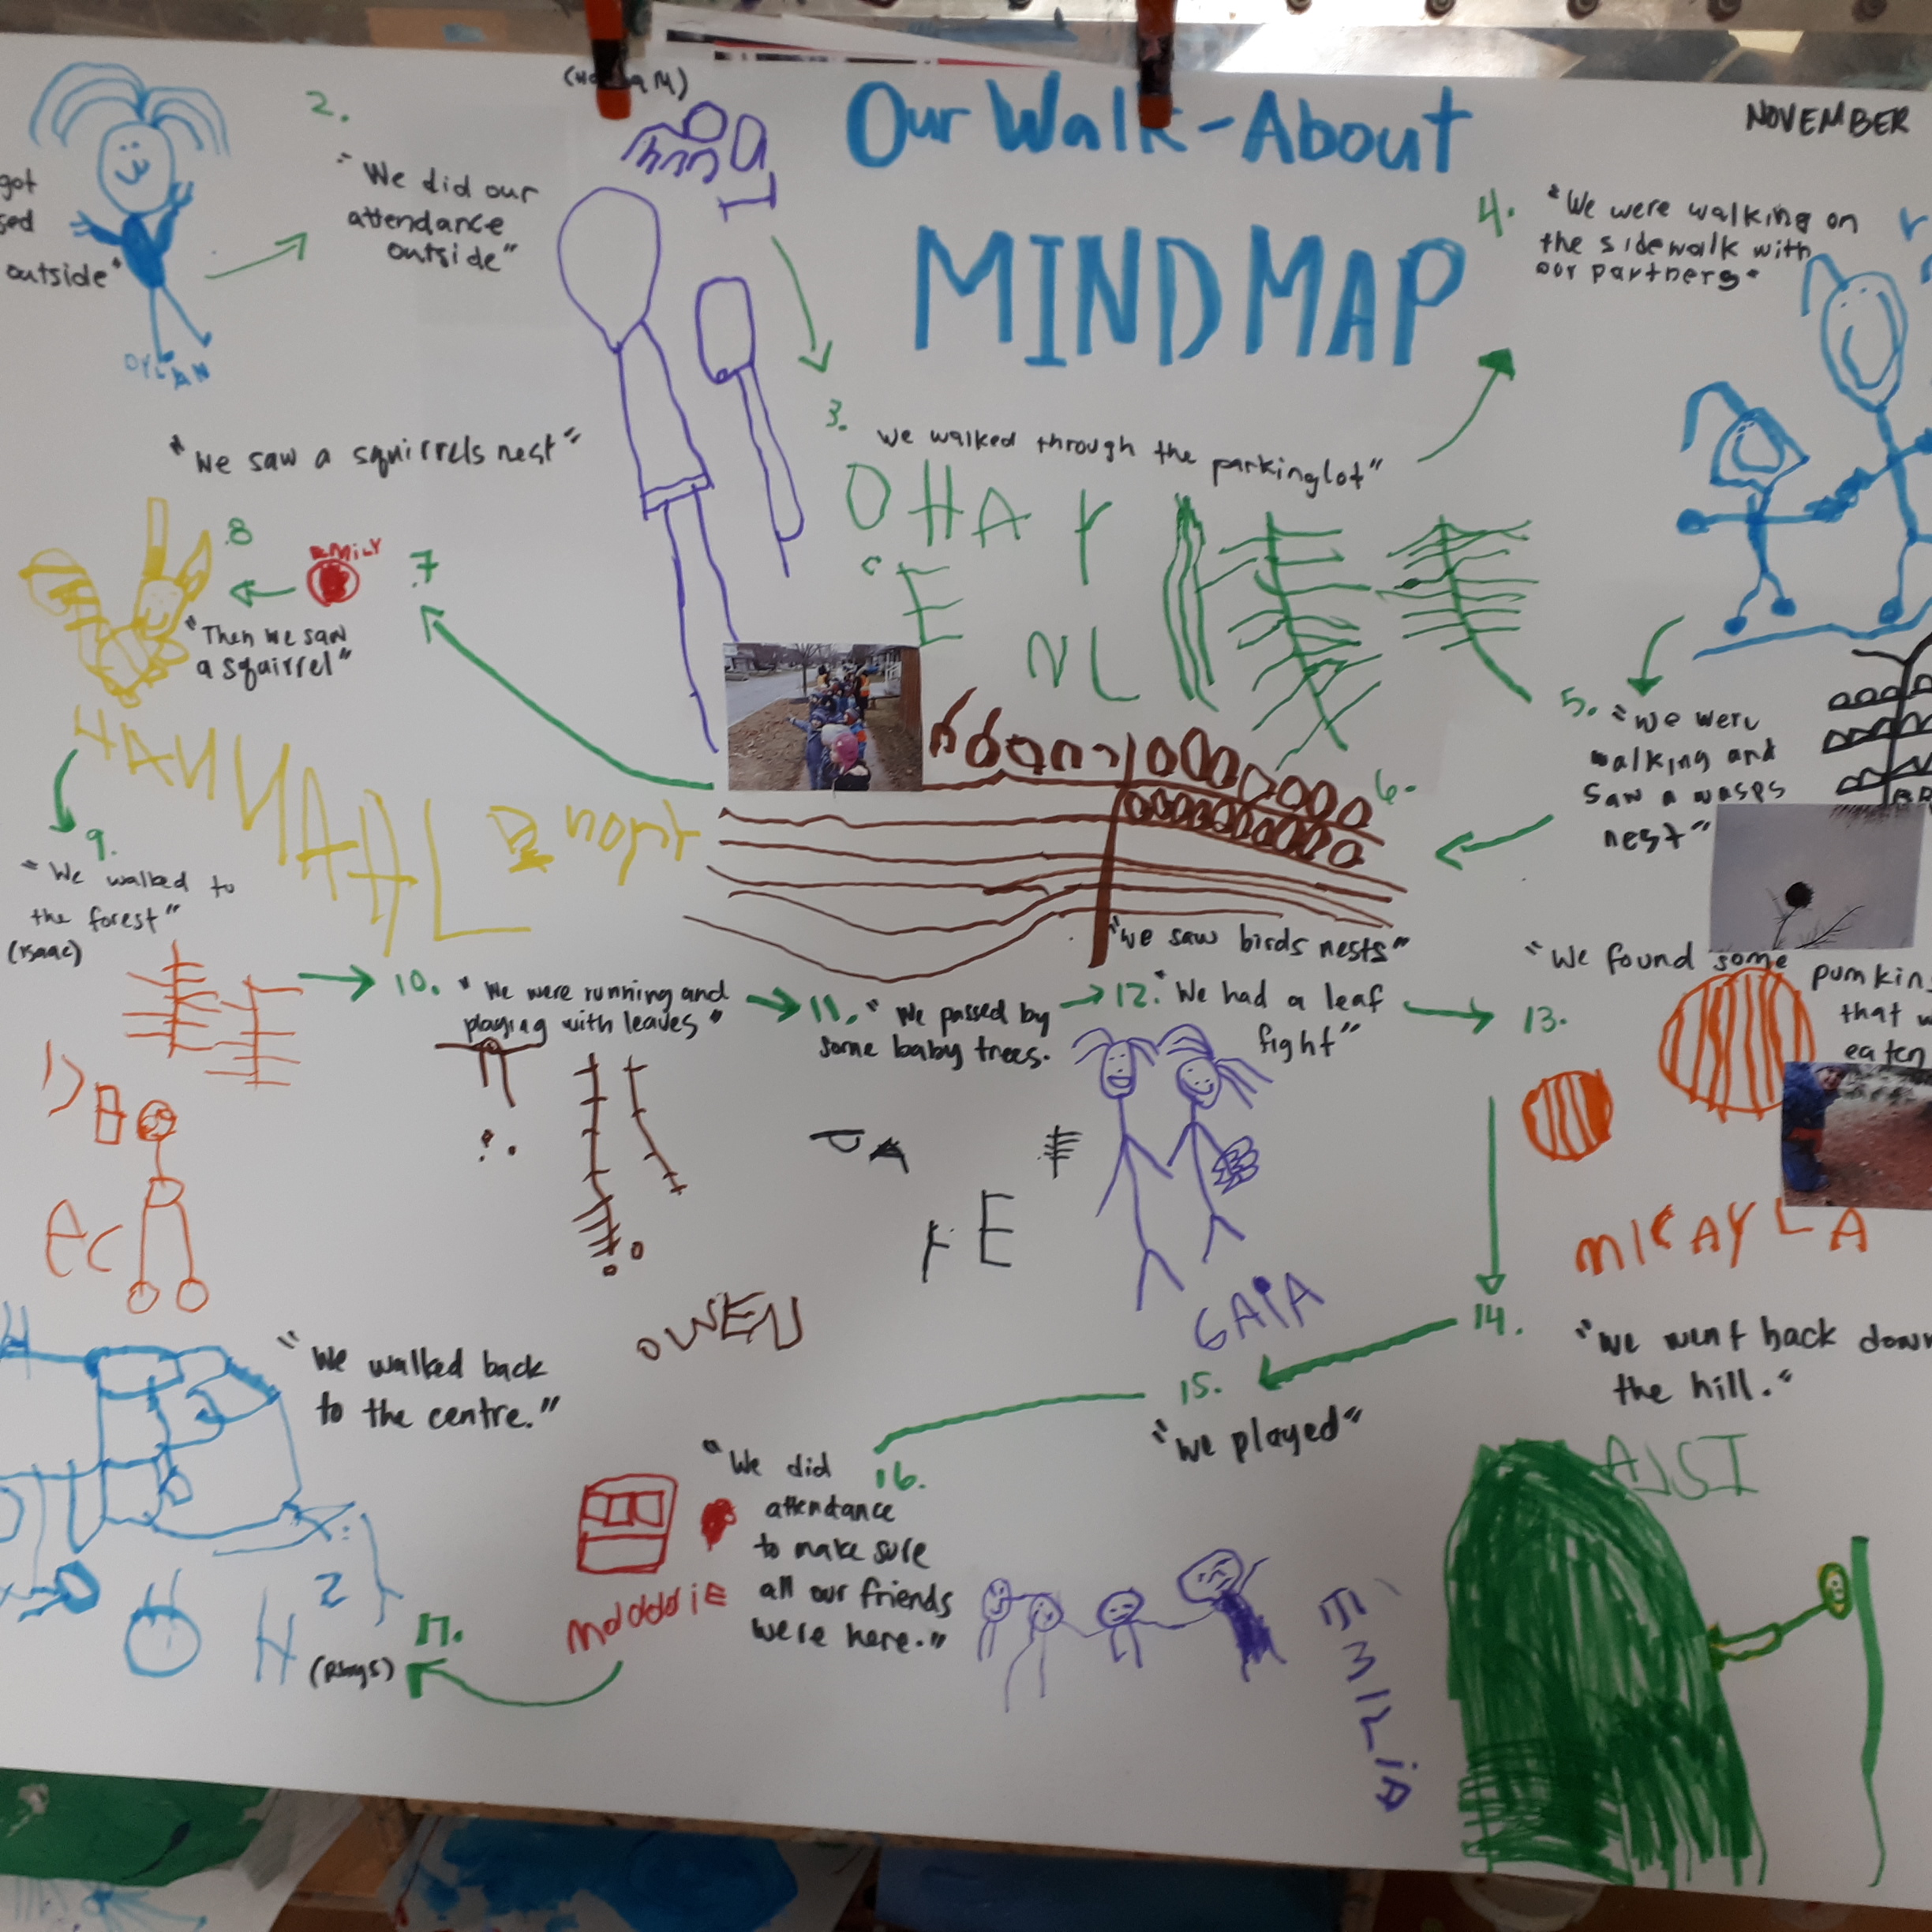 Our Walk-About
MINDMAP
NOVEMBER
got
outside"
DYLAN
2.
"We did our
attendance
outside"
3.
we walked through the parkinglot"
4.
"We were walking on
the sidewalk with
our partners"
5.
"We were
walking and
saw a wasps
nest"
6.
"we saw birds nests"
7
EMiLY
"Then we saw
a squirrel"
8
"We saw a squirrels nest"
HANNAH L
9.
"We walked to
the forest"
(Isaac)
10.
"We were running and
playing with leaves"
OWEN
11.
"We passed by
some baby trees.
12.
"We had a leaf
fight"
GAiA
13.
"We found some
pumkin
that w
eaten
MICAYLA
14.
"We went back down
the hill."
15.
"we played"
EMILiA
16.
"We did
attendance
to make sure
all our friends
were here."
17.
"We walked back
to the centre."